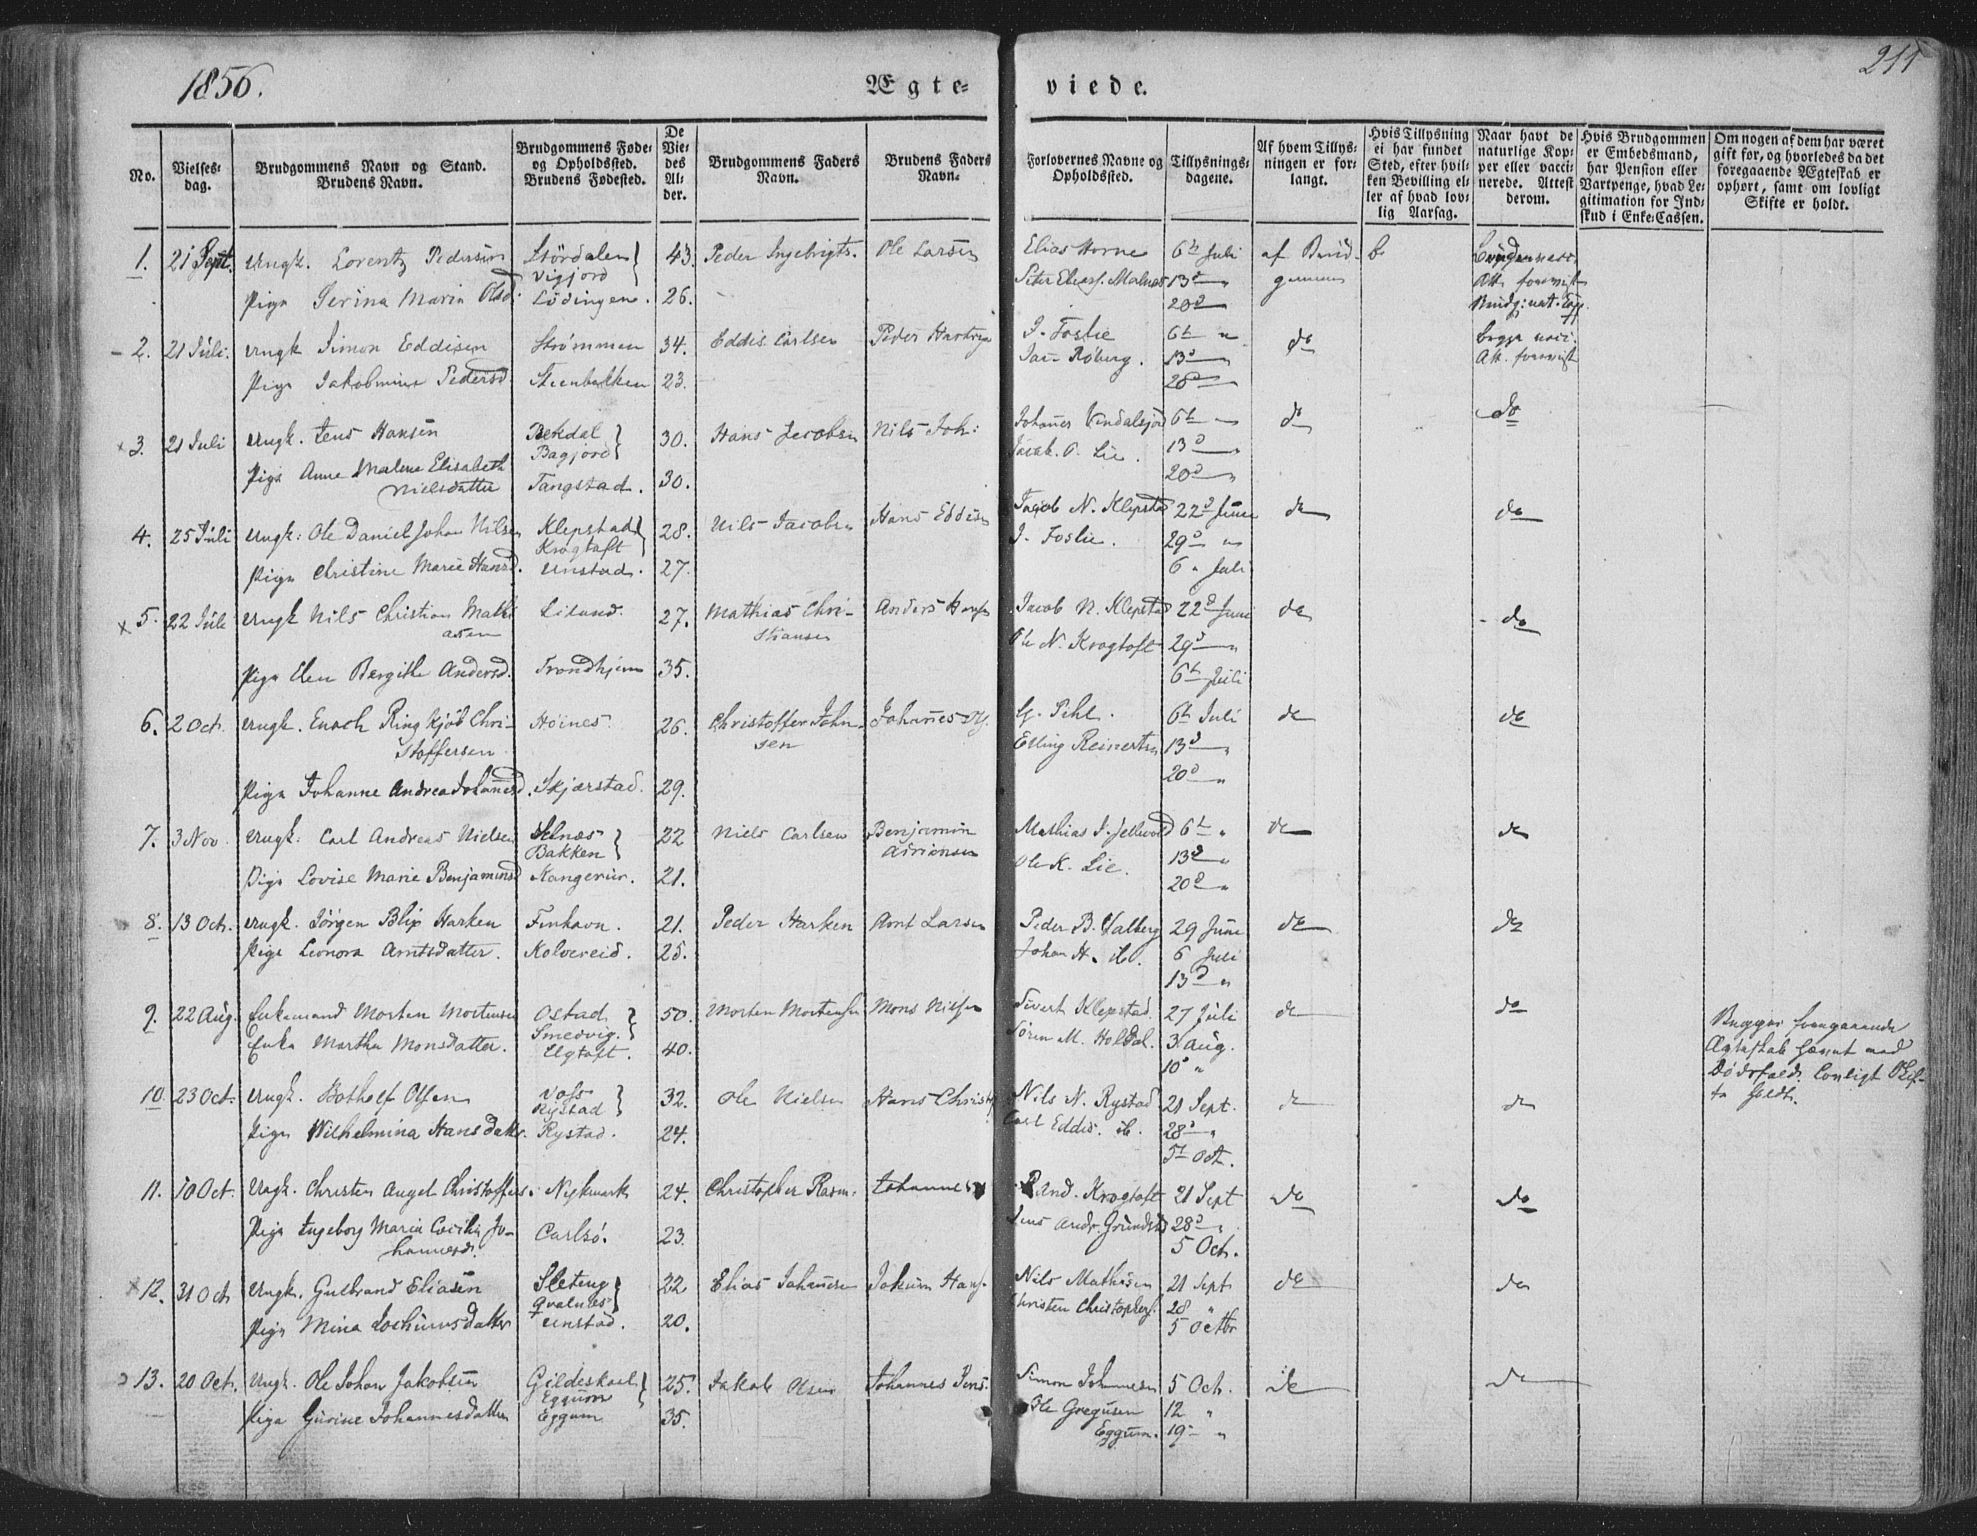 1856.
Ægte-
viede.
211
No.
Vielses-
dag.
Brudgommens Navn og Stand.
Brudens Navn.
Brudgommens Føde-
og Opholdssted.
Brudens Fødested.
De
Vie-
des
Al-
der.
Brudgommens Faders
Navn.
Brudens Faders
Navn.
Forlovernes Navne og
Opholdssted.
Tillysnings-
dagene.
Af hvem Tillys-
ningen er for-
langt.
Hvis Tillysning
ei har fundet
Sted, efter hvil-
ken Bevilling el-
ler af hvad lov-
lig Aarsag.
Naar havt de
naturlige Kop-
per eller vacci-
nerede. Attest
derom.
Hvis Brudgommen
er Embedsmand,
har Pension eller
Vartpenge, hvad Le-
gitimation for Ind-
skud i Enke-Cassen.
Om nogen af dem har været
gift før, og hvorledes da det
foregaaende Ægteskab er
ophørt, samt om lovligt
Skifte er holdt.
1. 21 Sept. Ungk. Lorentz Pedersen Stördalen 43. Peder Ingebrigts. Ole Larsen Elias Horne 6te Juli af Brud-
Vigjord
Pige Serina Maria Olsd. Lödingen. 26. Peter Elias. Malnæs 13d " gommen
20d "
2. 21 Juli. Ungk Simon Eddisen Strömmen 34. Eddis Carlsen Peder Hartvig J. Foslie 6t " do Begge vacc.
Röberg. 13d " Att. forevist
Pige Jakobmine Pedersd. Steenbakken 23. 20d "
3. 21 Juli Ungk. Jens Hansen 30. Hans Jacobsen Nils Joh: Johannes 6t " do do
Bagjord
Jacob. O. Lie. 13d "
Pige Anne Malene Elisabeth
Nielsdatter Tangstad. 30. 20d "
4. 25 Juli Ungk: Ole Daniel Johan Nilsen Klepstad 28. Nils Jacobsen Hans Eddisen Jacob N. Klepstad 22d Juni do do
Krogtoft J. Foslie. 29d "
Pige Christine Marie Hansd. Unstad. 27. 6. Juli
5. 22 Juli Ungk Nils Christian Mathi Lilund. 27. Mathias Chri- Anders Hansen Jacob N. Klepstad 22d Juni do do
asen stiansen Ole N. Krogtoft 29d "
Pige Elen Bergithe Andersd. Trondhjem 35. 6t Juli
6. 2 Oct. Ungk. Enoch Ringkjöb Chri- Höines. 26. Christoffer John- Johannes G. Pihl. 6t Juli do do
stoffersen sen Elling Reinertsen 13d "
20d "
Pige Johanne Andrea Johannesd. Skjærstad. 29.
7. 3 Nov. Ungk: Carl Andreas Nielsen Selnæs 22 Niels Carlsen Benjamin Mathias J. 6t " do do
Bakken Adriansen Ole K. Lie. 13d "
Pige Lovise Marie Benjaminsd 21. 20d "
8. 13 Oct. Ungk. Jörgen Blix Harken Finhavn. 21. Peder Harken Arnt Larsen Peder B. Valberg 29 Juni do do
Pige Leonora Arntsdatter. Kolvereid. 25. Johan H. ib. 6 Juli
13d "
9. 22 Aug. Enkemand Morten Mortensen Ostad 50. Morten Mortensen Mons Nilsen Sivert Klepstad. 27 Juli do do Begges foregaaende
Smedvig. Sören M. Holdal. 3. Aug. Ægteskab hævet ved
Enke Martha Monsdatter. Ulgtoft. 40. 10d " Dödsfald. Lovligt Skif-
te holdt.
10. 23 Oct. Ungk. Botholf Olsen Voss 32. Ole Nielsen Hans Christ. Nils N. Rystad 21 Sept. do do
Rystad Carl Eddis. ib. 28d "
Pige Wilhelmina Hansdatter. Rystad. 24. 5t Oct.
11. 10 Oct. Ungk. Christen Angel Christoffers. Nykmark 24. Christopher Rasm. Johannes Rand. Krogtoft 21 Sept do do
Pige Ingeborg Maria Cecilia Jo- Carlsö. 23. Jens Andr. 28d "
hannesd. 5 Oct.
12. 31 Oct Ungk. Gulbrand Eliasen Sleteng 22 Elias Johannesen Jokum Hans. Nils Mathisen 21 Sept do do
Qvalnæs Christen Christophers. 28 "
Pige Mina Jochumsdatter Unstad. 20. 5 Octbr
13. 20 Oct. Ungk. Ole Johan Jakobsen Gildeskaal 25. Jakob Olsen Johannes Jens. Simon Johannesen 5 Oct. do do
Eggum Ole Gregusen 12 "
Pige Gurine Johannesdatter Eggum 35. Eggum. 19 "